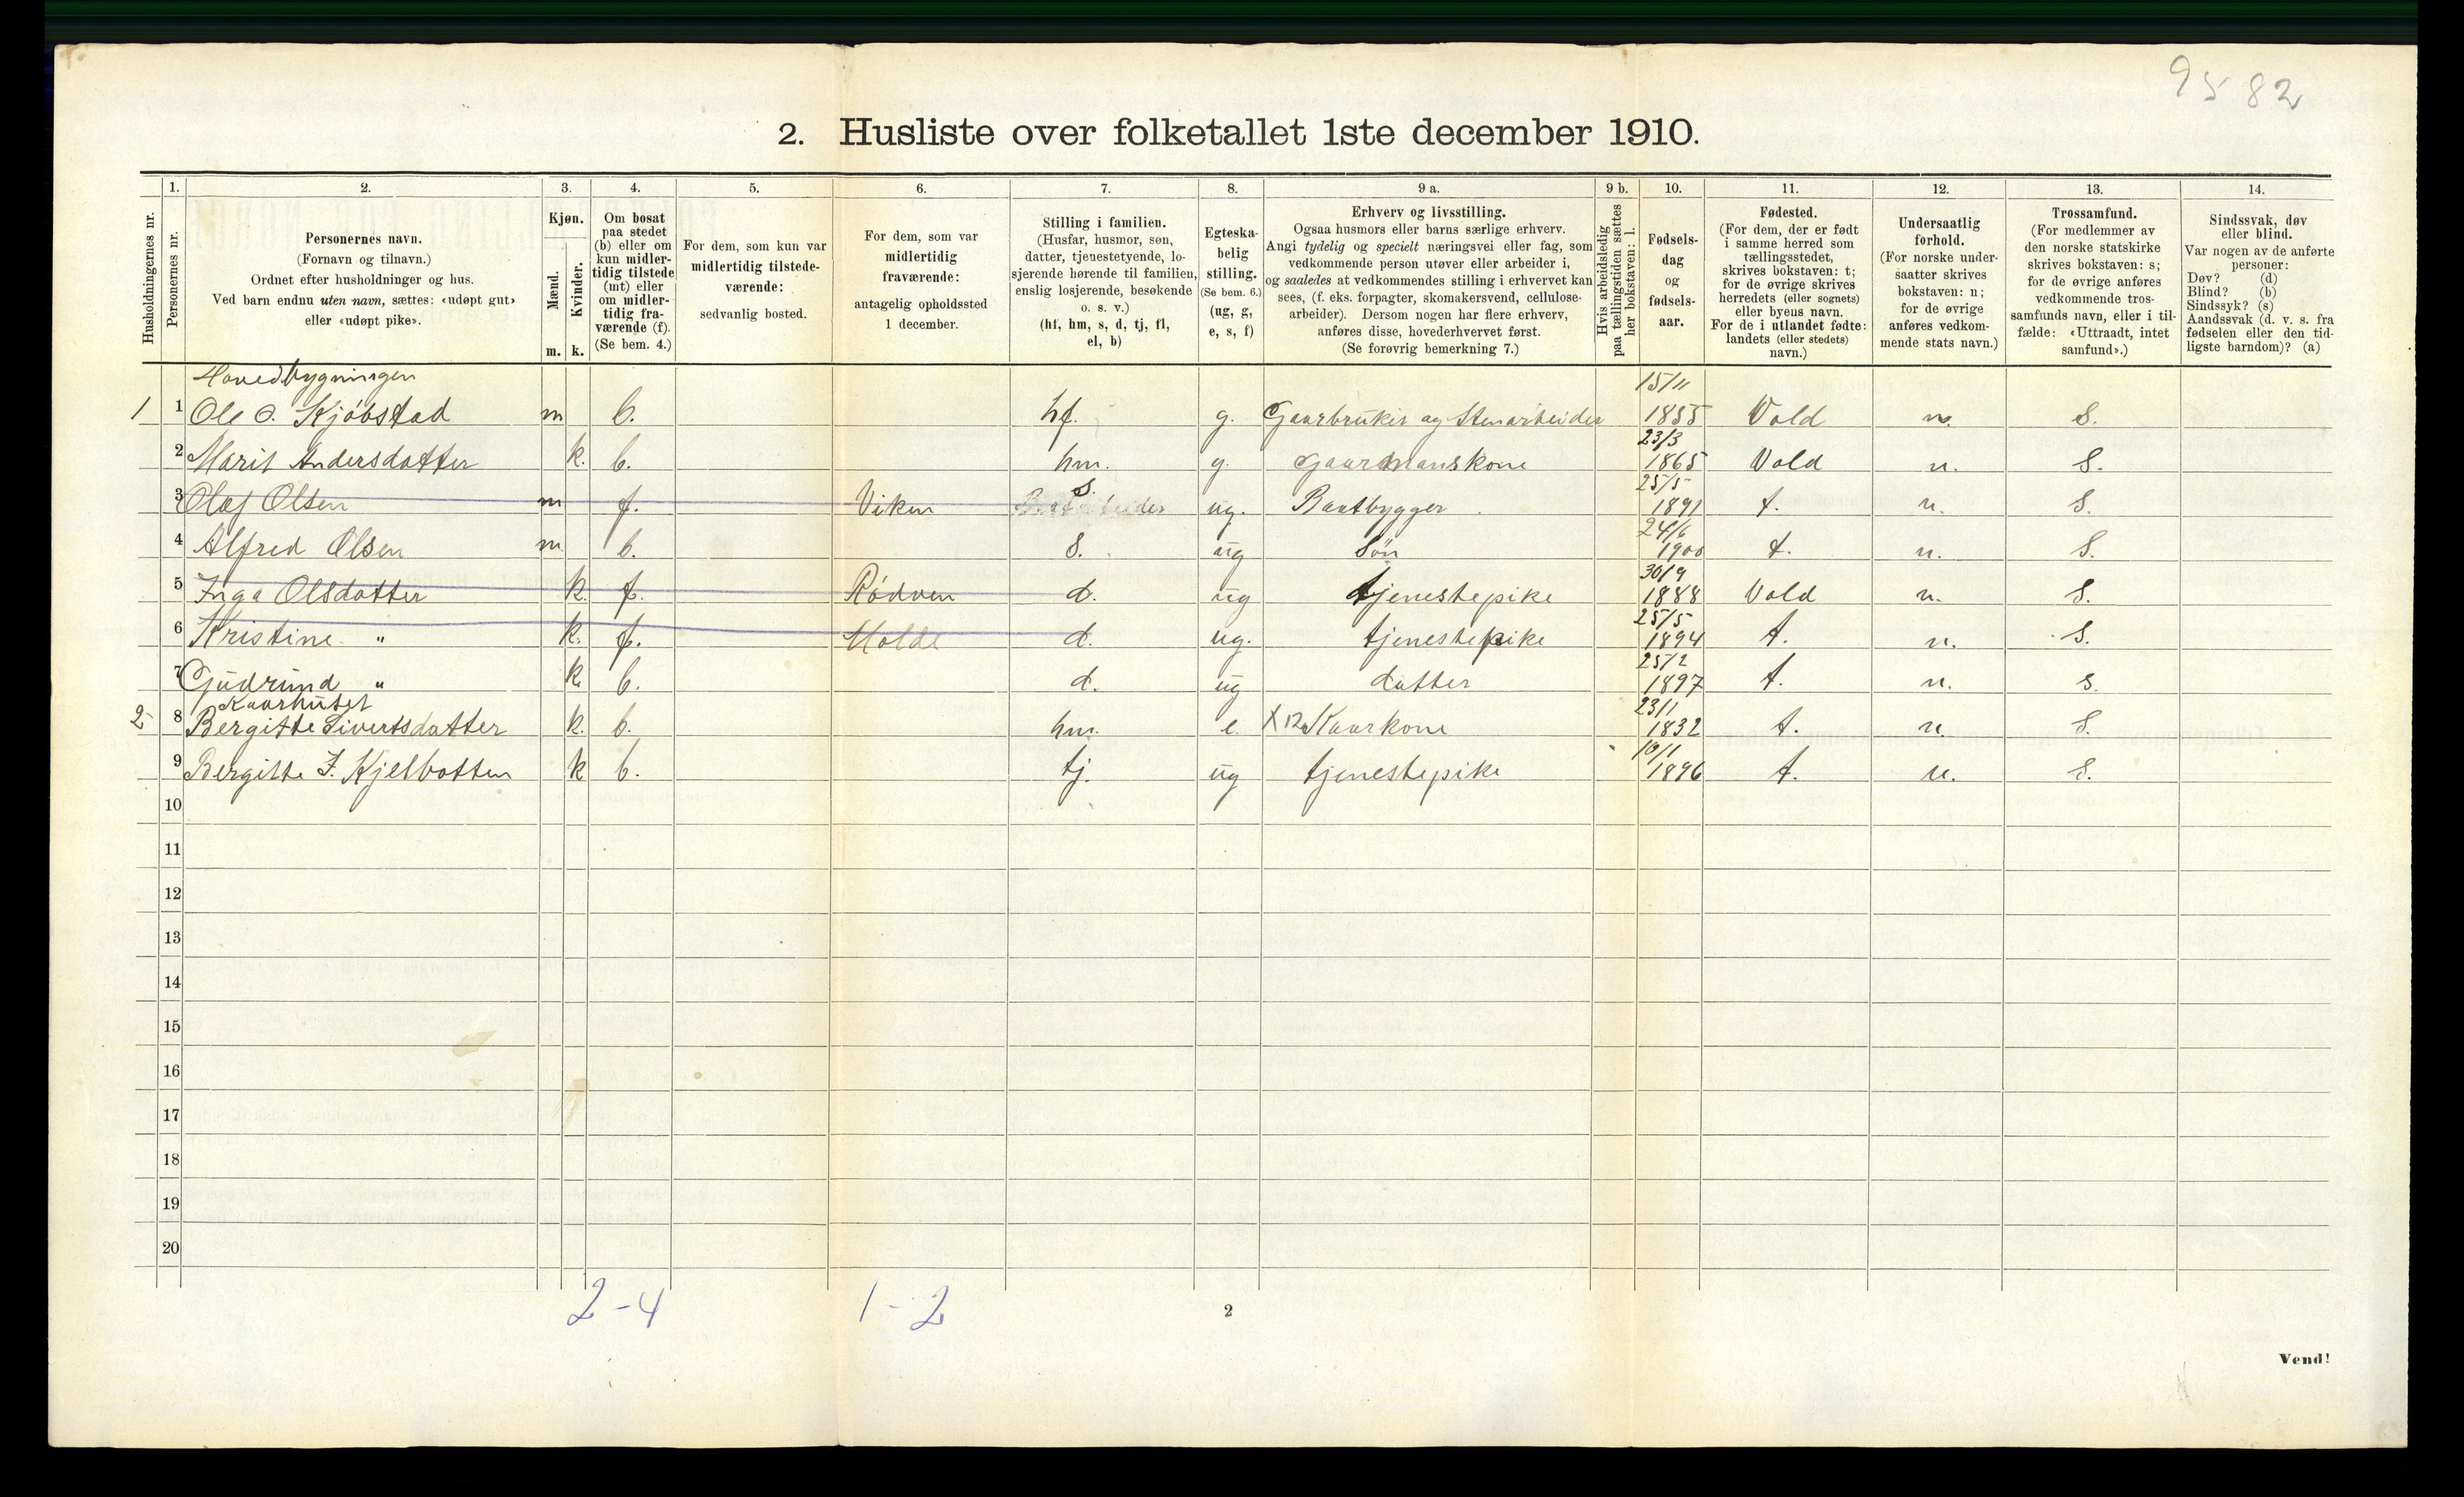 9582
2. Husliste over folketallet 1ste december 1910.
Husholdningernes nr.
1.
Personernes nr.
2.
Personernes navn.
(Fornavn og tilnavn.)
Ordnet efter husholdninger og hus.
Ved barn endnu uten navn, sættes: «udøpt gut»
eller «udøpt pike».
3.
Kjøn.
Mænd.
Kvinder.
m. k.
4.
Om bosat
paa stedet
(b) eller om
kun midler-
tidig tilstede
(mt) eller
om midler-
tidig fra-
værende (f).
(Se bem. 4.)
5.
For dem, som kun var
midlertidig tilstede-
værende:
sedvanlig bosted.
6.
For dem, som var
midlertidig
fraværende:
antagelig opholdssted
1 december.
7.
Stilling i familien.
(Husfar, husmor, søn,
datter, tjenestetyende, lo-
sjerende hørende til familien,
enslig losjerende, besøkende
o. s. v.)
(hf, hm, s, d, tj, fl,
el, b)
8.
Egteska-
belig
stilling.
(Se bem. 6.)
(ug, g,
e, s, f)
9 a.
Erhverv og livsstilling.
Ogsaa husmors eller barns særlige erhverv.
Angi tydelig og specielt næringsvei eller fag, som
vedkommende person utøver eller arbeider i,
og saaledes at vedkommendes stilling i erhvervet kan
sees, (f. eks. forpagter, skomakersvend, cellulose-
arbeider). Dersom nogen har flere erhverv,
anføres disse, hovederhvervet først.
(Se forøvrig bemerkning 7.)
9 b.
Hvis arbeidsledig
paa tællingstiden sættes
her bokstaven: l.
10.
Fødsels-
dag
og
fødsels-
aar.
11.
Fødested.
(For dem, der er født
i samme herred som
tællingsstedet,
skrives bokstaven: t;
for de øvrige skrives
herredets (eller sognets)
eller byens navn.
For de i utlandet fødte:
landets (eller stedets)
navn.)
12.
Undersaatlig
forhold.
(For norske under-
saatter skrives
bokstaven: n;
for de øvrige
anføres vedkom-
mende stats navn.)
13.
Trossamfund.
(For medlemmer av
den norske statskirke
skrives bokstaven: s;
for de øvrige anføres
vedkommende tros-
samfunds navn, eller i til-
fælde: «Uttraadt, intet
samfund».)
14.
Sindssvak, døv
eller blind.
Var nogen av de anførte
personer:
Døv? (d)
Blind? (b)
Sindssyk? (s)
Aandssvak (d. v. s. fra
fødselen eller den tid-
ligste barndom)? (a)
Hovedbygningen
1 1 Ole O. Kjøbstad m b. hf. g. Gaarbruker og Stenarbeider 15/11 1855 Vold n. S.
2 Marit Andersdatter k. b. hm. g. Gaarmanskone 23/3 1865 Vold n. S.
3 Olaf Olsen m f. Viken S. ug. Baatbygger 25/5 1891 t. n. S.
4 Alfred Olsen m b. S. ug Søn 24/6 1900 t. n. S.
5 Inga Olsdatter k. f. Rødven d. ug tjenestepike 30/9 1888 Vold n. S.
6 Kristine " k. f. Molde d. ug. tjenestepike 25/5 1894 t. n. S.
7 Gudrund " k. b. d. ug datter 25/2 1897 t. n. S.
Kaarhuset
2 8 Bergitte Sivertsdatter k. b. hm. e. X 12 Kaarkone 23/1 1832 t. n. S.
9 Bergitte J. Kjelbotten k b. tj. ug tjenestepike 10/1 1896 t. n. S.
10
11
12
13
14
15
16
17
18
19
20
2-4 1-2
2
Vend!